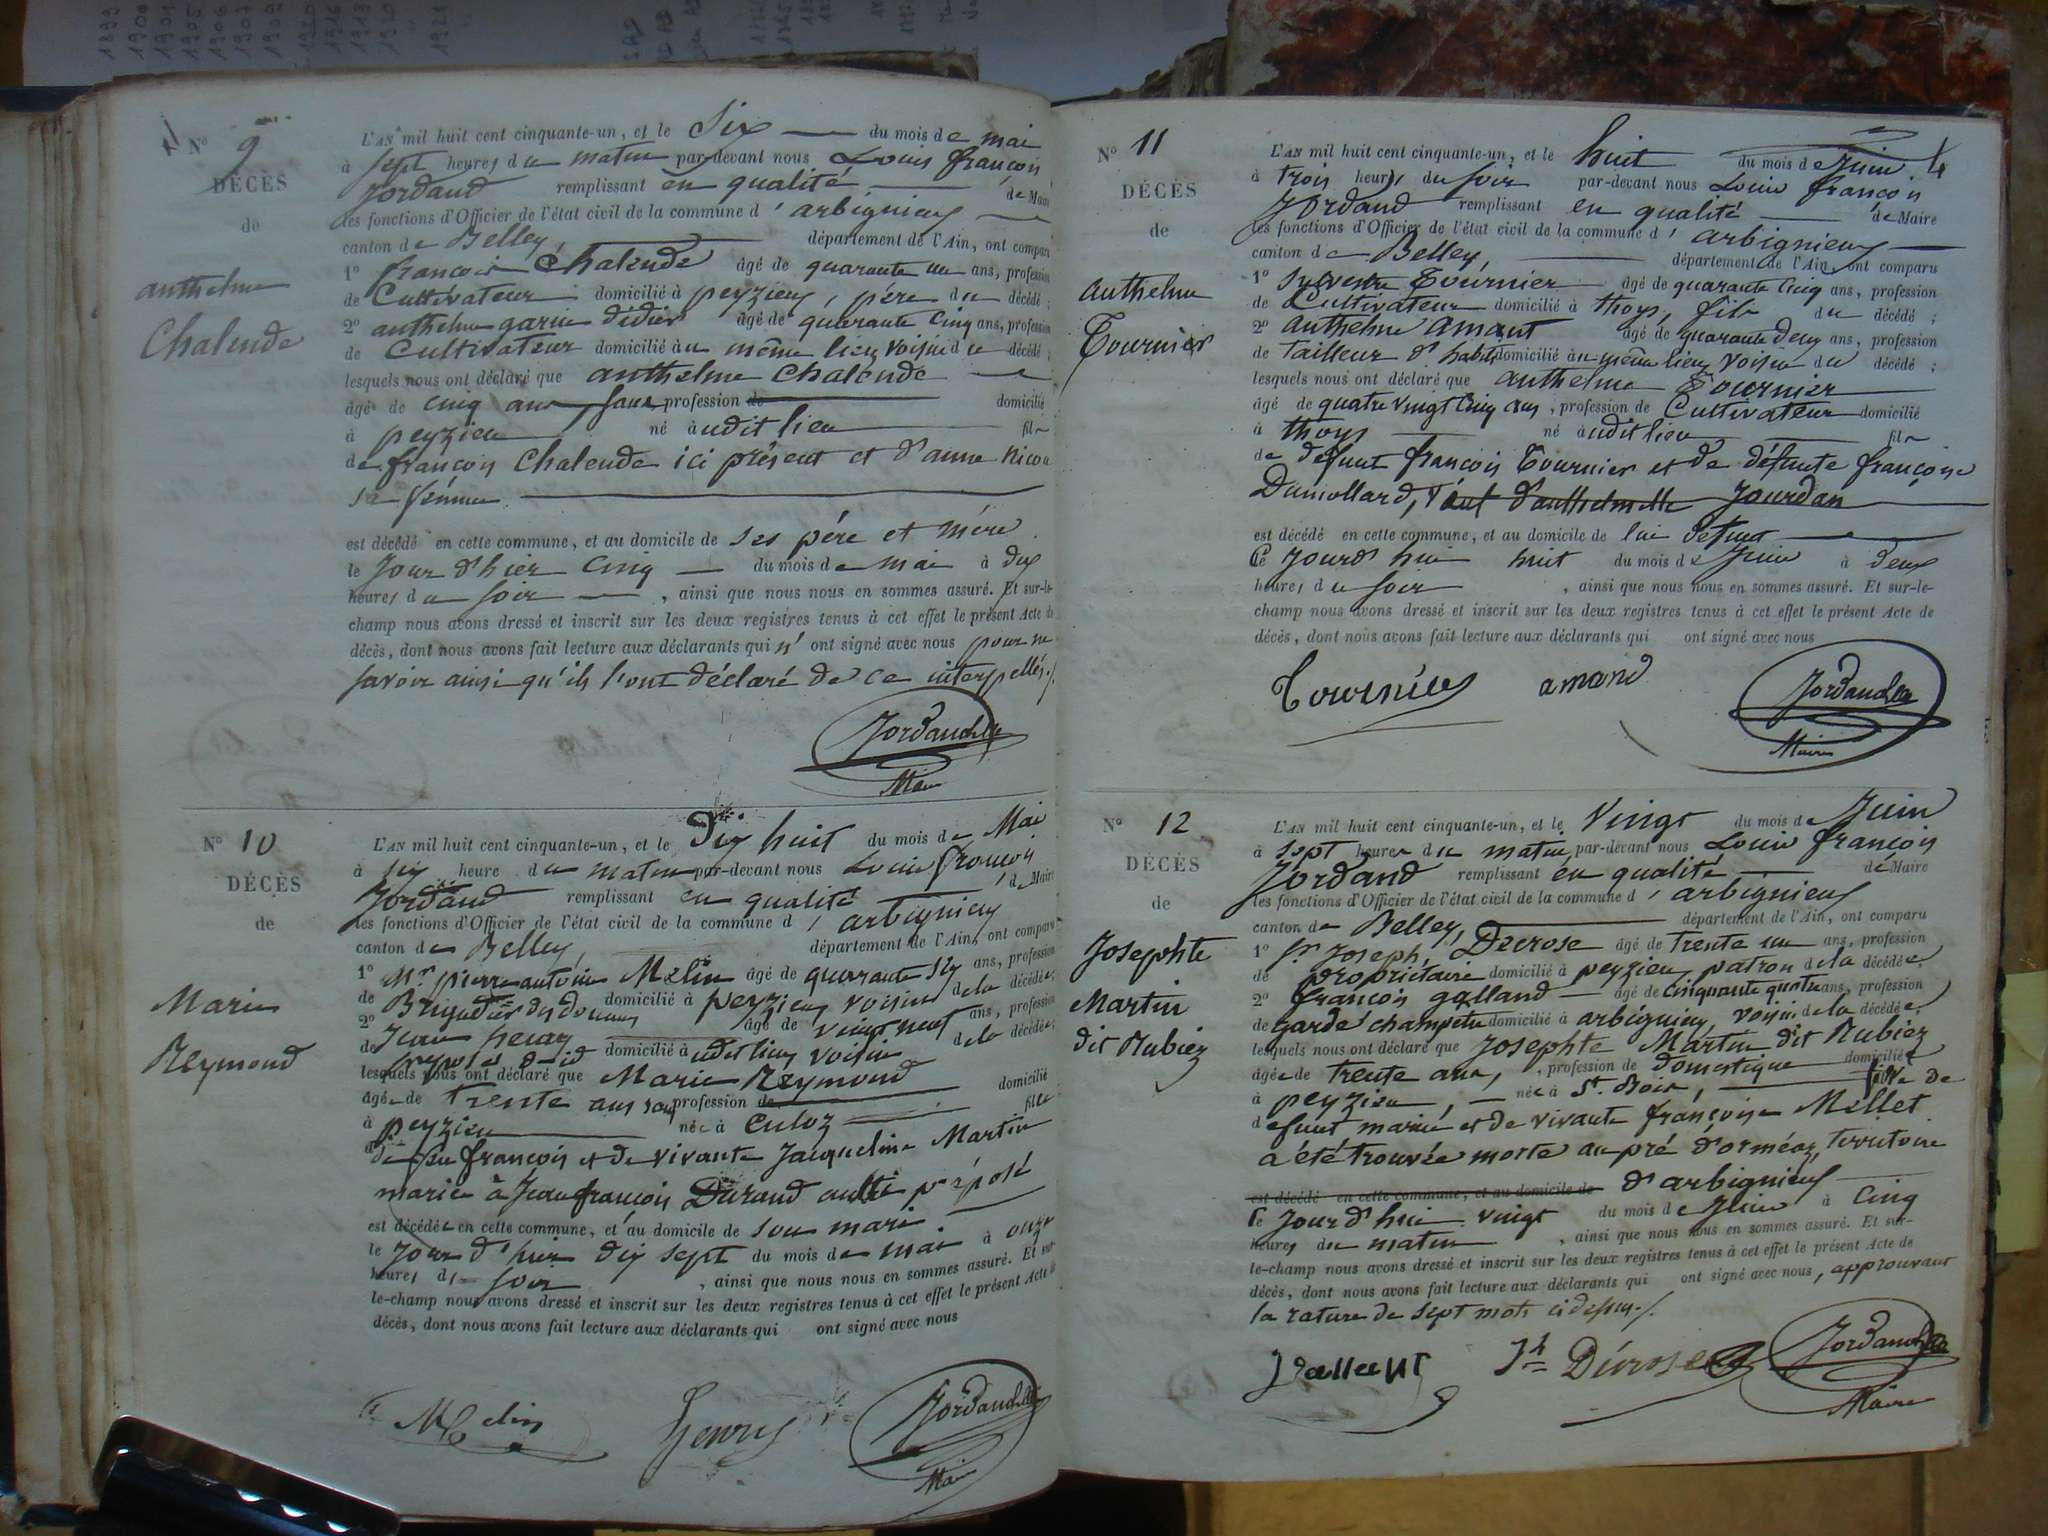 N° 9
DÉCÈS
de
anthelme
Chalende
L'AN mil huit cent cinquante-un, et le Six du mois de mai
à sept heures du matin par-devant nous Louis françois
Jordand remplissant en qualité de Maire
les fonctions d'Officier de l'état civil de la commune d'arbignieu
canton de Belley, département de l'Ain, ont comparu
1° françois Chalende âgé de quarante un ans, profession
de Cultivateur domicilié à peyzieu, père du décédé ;
2° anthelme garin didier âgé de quarante cinq ans, profession
de Cultivateur domicilié au même lieu voisin du décédé ;
lesquels nous ont déclaré que anthelme Chalende
âgé de cinq ans sans profession de domicilié
à peyzieu né audit lieu fils
de françois Chalende ici présent et d'anne Nicou
sa femme
est décédé en cette commune, et au domicile de ses père et mère
le Jour d'hier cinq du mois de mai à dix
heures du soir , ainsi que nous nous en sommes assuré. Et sur-le-
champ nous avons dressé et inscrit sur les deux registres tenus à cet effet le présent Acte de
décès, dont nous avons fait lecture aux déclarants qui n'ont signé avec nous pour ne
savoir ainsi qu'ils l'ont déclaré de ce interpellés./.
Jordand
Maire
N° 10
DÉCÈS
de
Marie
Reymond
L'AN mil huit cent cinquante-un, et le Dix huit du mois de Mai
à six heure du matin par-devant nous Louis françois
Jordand remplissant en qualité de Maire
les fonctions d'Officier de l'état civil de la commune d'arbignieu
canton de Belley, département de l'Ain, ont comparu
1° Mr. pierre antoine Melin âgé de quarante six ans, profession
de Brigadier des douanes domicilié à peyzieu voisin de la décédée;
2° Jean henry âgé de vingt neuf ans, profession
de préposé domicilié audit lieu voisin de la décédée;
lesquels nous ont déclaré que Marie Reymond
âgée de trente ans sans profession de domicilié
à peyzieu née à Culoz fille
de feu françois et de vivante Jacqueline Martin
mariée à Jean françois Durand préposé
est décédée en cette commune, et au domicile de son mari
le Jour d'hier dix sept du mois de mai à onze
heures du soir , ainsi que nous nous en sommes assuré. Et sur-
le-champ nous avons dressé et inscrit sur les deux registres tenus à cet effet le présent Acte de
décès, dont nous avons fait lecture aux déclarants qui ont signé avec nous
Melin henry Jordand
Maire
N° 11
DÉCÈS
de
Anthelme
Tournier
L'AN mil huit cent cinquante-un, et le huit du mois de Juin
à trois heures du soir par-devant nous Louis françois
Jordand remplissant en qualité de Maire
les fonctions d'Officier de l'état civil de la commune d'arbignieu
canton de Belley, département de l'Ain, ont comparu
1° Sylvestre Tournier âgé de quarante cinq ans, profession
de Cultivateur domicilié à thoys, fils du décédé ;
2° Anthelme amant âgé de quarante deux ans, profession
de tailleur d'habits domicilié au même lieu, voisin du décédé ;
lesquels nous ont déclaré que anthelme Tournier
âgé de quatre vingt cinq ans, profession de Cultivateur domicilié
à thoys né audit lieu fils
de défunt françois Tournier et de défunte françoise
Dumollard, veuf d'anthelmette Jourdan
est décédé en cette commune, et au domicile de lui défunt
Ce jourd'hui huit du mois de Juin à deux
heures du soir , ainsi que nous nous en sommes assuré. Et sur-le-
champ nous avons dressé et inscrit sur les deux registres tenus à cet effet le présent Acte de
décès, dont nous avons fait lecture aux déclarants qui ont signé avec nous
Tournier amand Jordand
Maire
N° 12
DÉCÈS
de
Josephte
Martin
dit Rubiez
L'AN mil huit cent cinquante-un, et le Vingt du mois de Juin
à sept heures du matin par-devant nous Louis françois
Jordand remplissant en qualité de Maire
les fonctions d'Officier de l'état civil de la commune d'arbignieu
canton de Belley, département de l'Ain, ont comparu
1° Sr. Joseph, Decrose âgé de trente un ans, profession
de propriétaire domicilié à peyzieu, patron de la décédée,
2° françois galland âgé de cinquante quatre ans, profession
de garde champêtre domicilié à arbignieu, voisin de la décédée,
lesquels nous ont déclaré que Josephte Martin dit Rubiez
âgée de trente ans, profession de domestique domiciliée
à peyzieu, née à St. Bois, fille de
défunt marié et de vivante françoise Millet
a été trouvée morte au pré d'orméaz, territoire
est décédé en cette commune, et au domicile de d'arbignieu
le jourd'hui vingt du mois de Juin à cinq
heures du matin , ainsi que nous nous en sommes assuré. Et sur-
le-champ nous avons dressé et inscrit sur les deux registres tenus à cet effet le présent Acte de
décès, dont nous avons fait lecture aux déclarants qui ont signé avec nous, approuvant
la rature de sept mots ci dessus./.
Jh Décrose Jordand
Maire